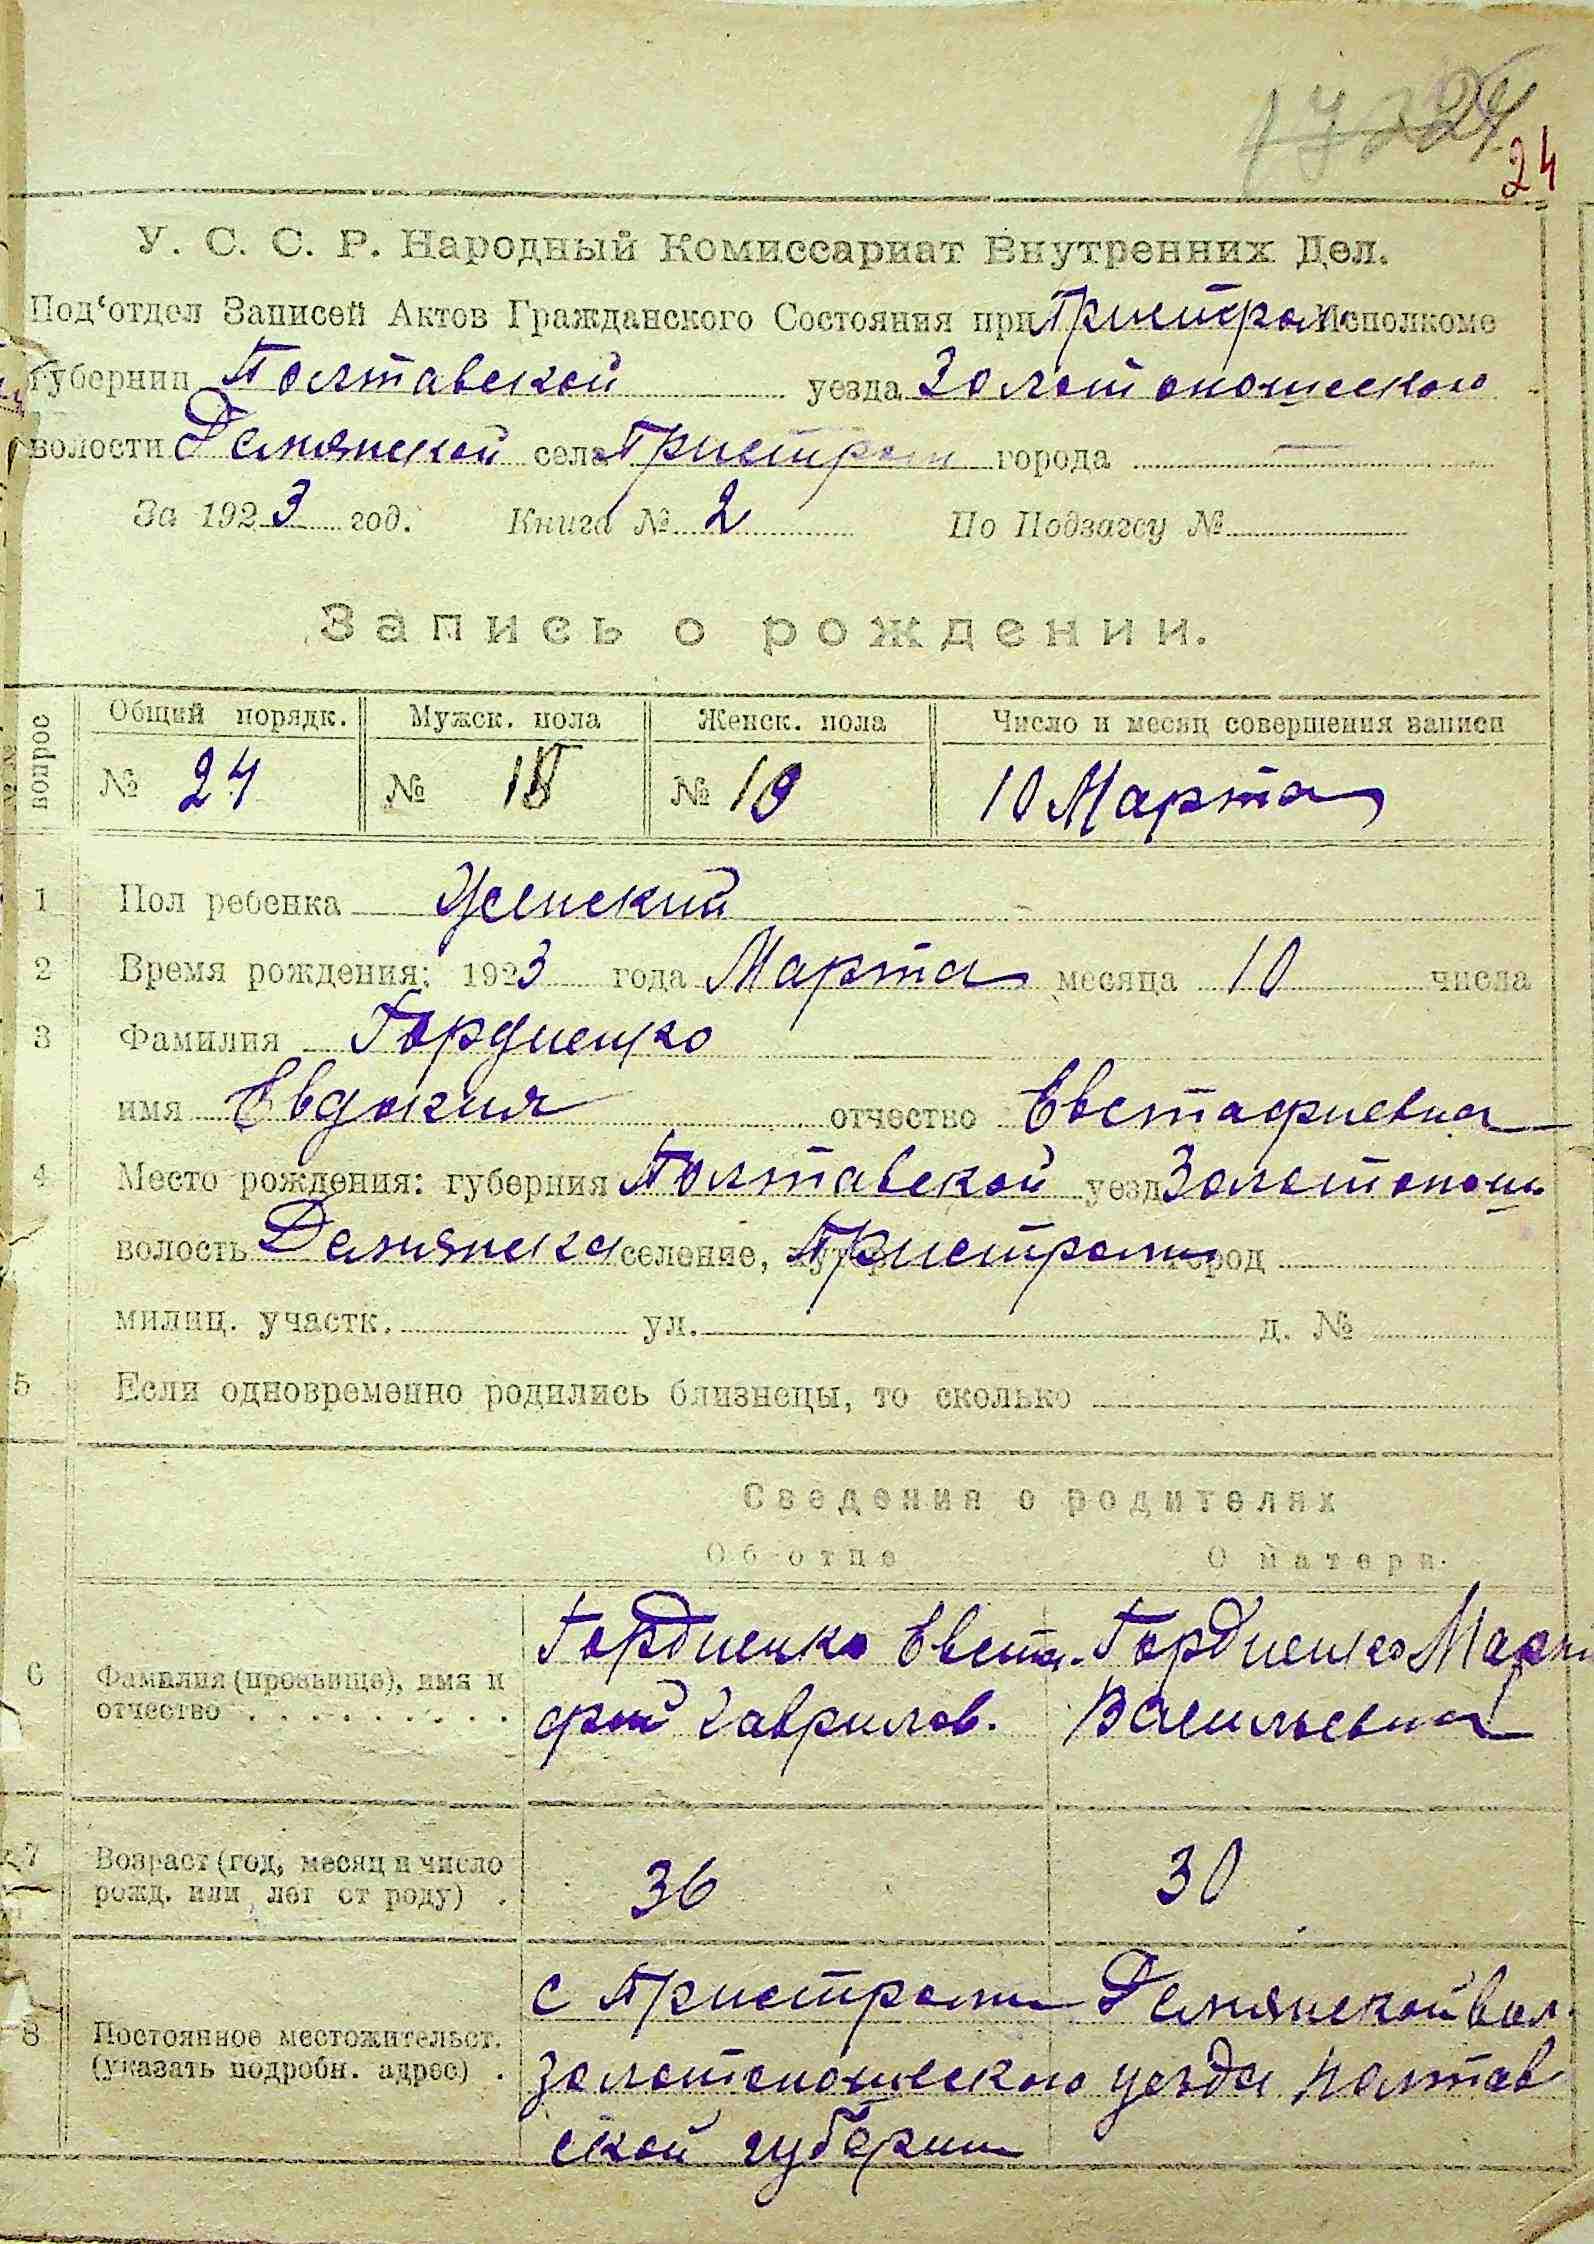 24
24
У. С. С. Р. Народный Комиссариат Внутренних Дел.
Под‘отдел Записей Актов Гражданского Состояния при Пристром Исполкоме
губернии Полтавской уезда Золотоношского
волости Демянской села Пристром города —
За 1923 год. Книга № 2 По Подзагсу №
Запись о рождении.
вопрос
Общий порядк. Мужск. пола Женск. пола Число и месяц совершения записи
№ 24 № № 10 Марта
1 Пол ребенка Женский
2 Время рождения: 1923 года Марта месяца 10 числа
3 Фамилия Гордиенко
имя Евдокия отчество Евстафиевна
4 Место рождения: губерния Полтавской уезд Золотонош
волость Демянска селение, хутор Пристромы город
милиц. участк. ул. д. №
5 Если одновременно родились близнецы, то сколько
Сведения о родителях
Об отце О матери
Гордиенко Евста- Гордиенко
6 Фамилия (прозвище), имя и
отчество фий Гаврилов. Васильевна
7 Возраст (год, месяц и число
рожд. или лет от роду) 36 30
с Пристромы Демянской вол.
8 Постоянное местожительст.
(указать подробн. адрес) золотоношского уезда полтав
ской губернии